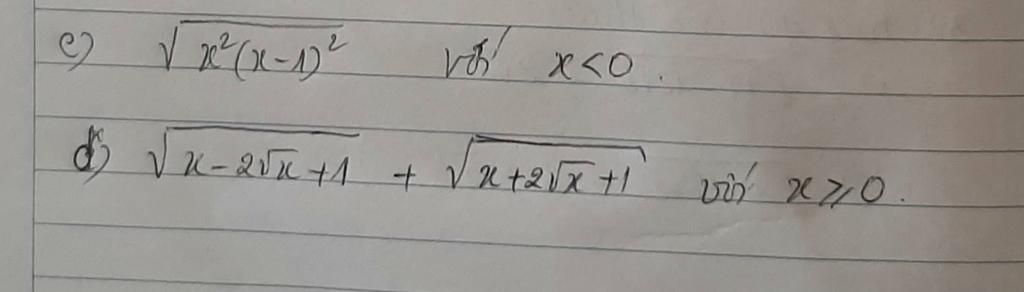 c) √x²(x-1)² với x<0.
d) √x-2√x+1 + √x+2√x+1 với x⩾0.